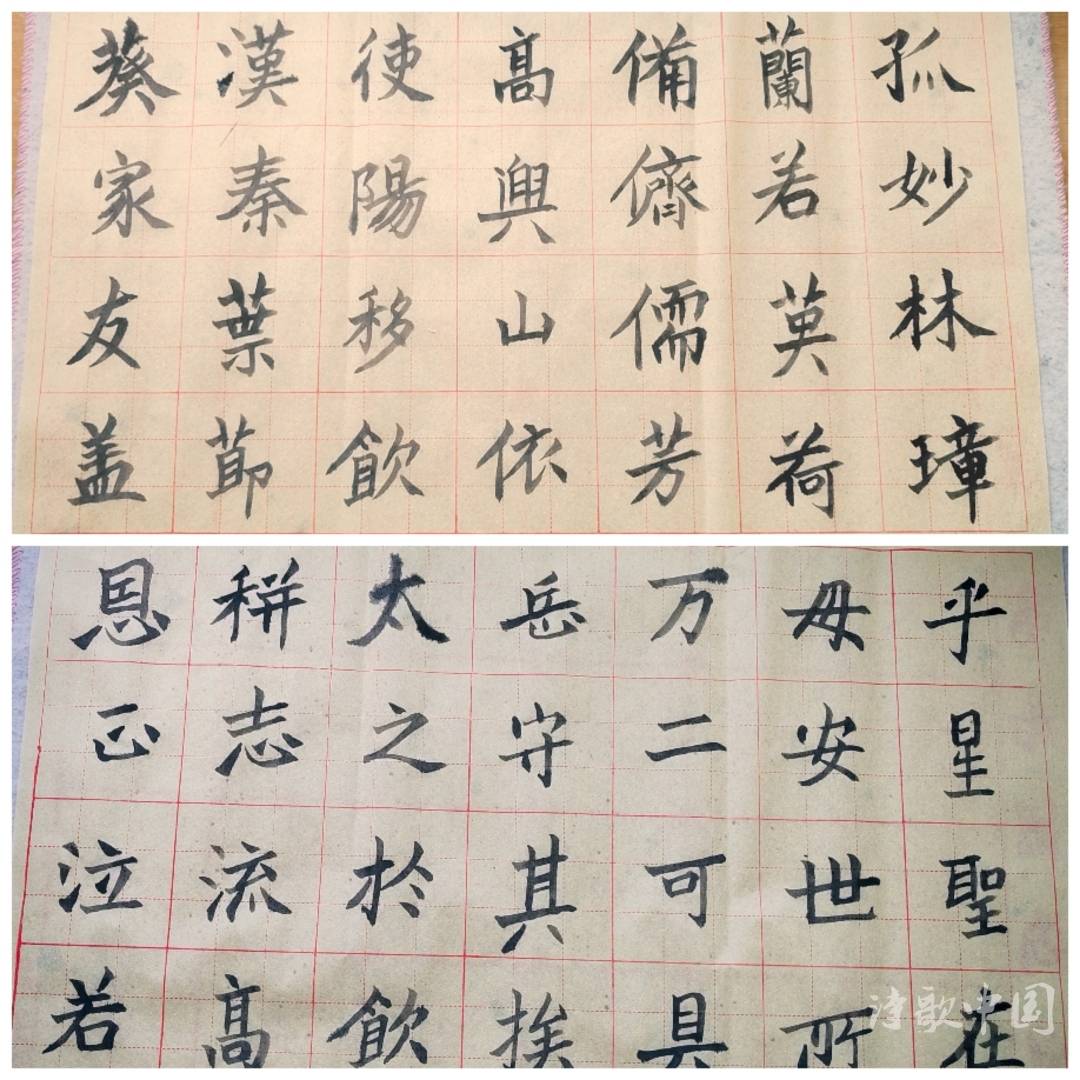 孤妙林璋
蘭若英荷
備儕儒芳
高興山依
使陽移飲
漢秦葉莭
葵家友盖
乎星聖在
毋安世所
万二可具
岳守其挨
太之於飲
志流高
恩正泣若
诗歌中国